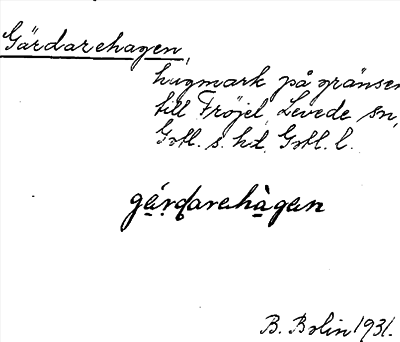 Gärdarehagen,
hugmark på gränsen
till Fröjel, Levede sn,
Gotl. s. hd. Gotl. l.
gä́rdarehàgen
B. Bolin 1931.